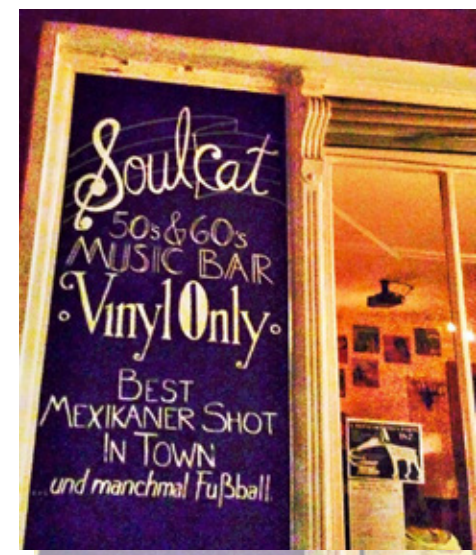 Soulcat
50s & 60s
MUSIC BAR
Vinyl Only
BEST
MEXIKANER SHOT
IN TOWN
...und manchmal Fußball.